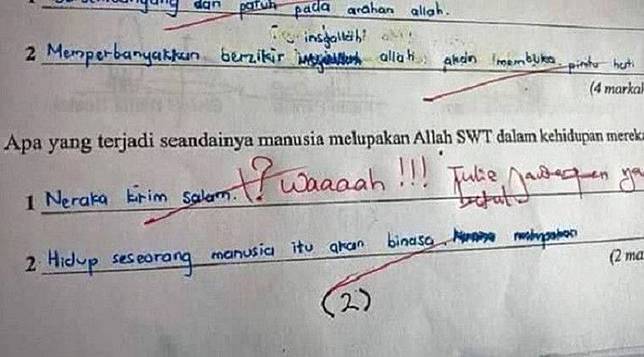 dan patuh pada arahan allah.
insyallah!
2 Memperbanyakkan berzikir allah, akan membuka pintu hati
(4 markah
Apa yang terjadi seandainya manusia melupakan Allah SWT dalam kehidupan merek
1 Neraka kirim salam. ? Waaaah !!! Tulis Jawapan ya
betul
2 Hidup seseorang manusia itu akan binasa
(2 ma
(2)